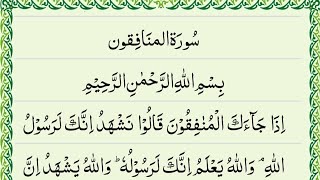 سُورَةُ المنَافِقون
بِسْمِ اللهِ الرَّحْمٰنِ الرَّحِيْمِ
اِذَا جَآءَكَ الْمُنٰفِقُوْنَ قَالُوْا نَشْهَدُ اِنَّكَ لَرَسُوْلُ
اللهِ ۘ وَاللهُ يَعْلَمُ اِنَّكَ لَرَسُوْلُهٗ ؕ وَاللهُ يَشْهَدُ اِنَّ